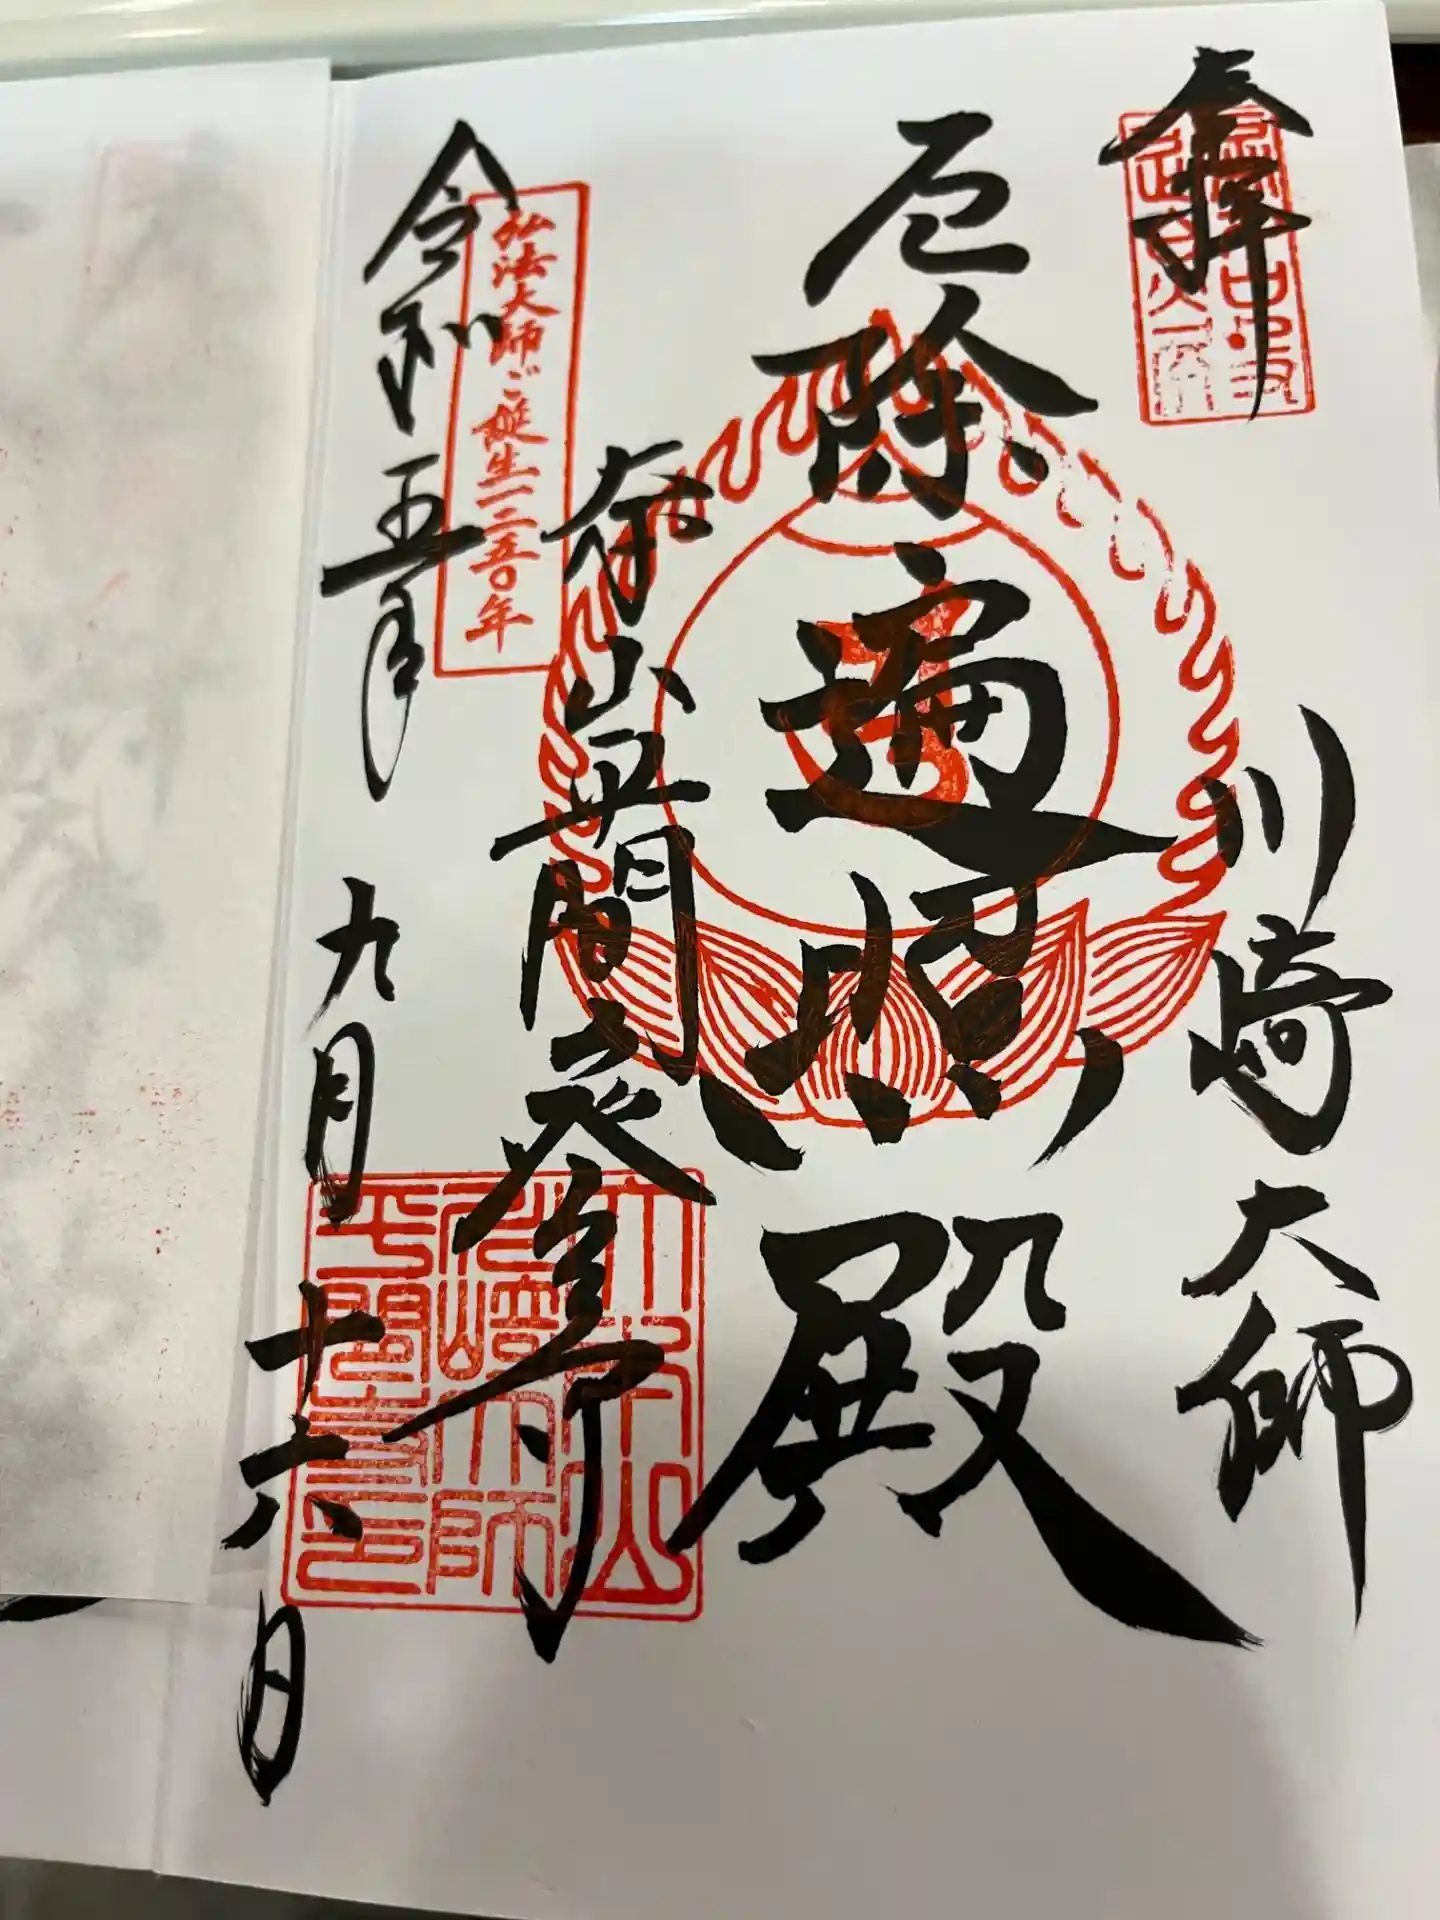 奉拝
川崎大師
厄除遍照殿
大本山平間寺
弘法大師ご誕生一二五〇年
令和五年九月十六日
大本山
川崎大師
平間寺印